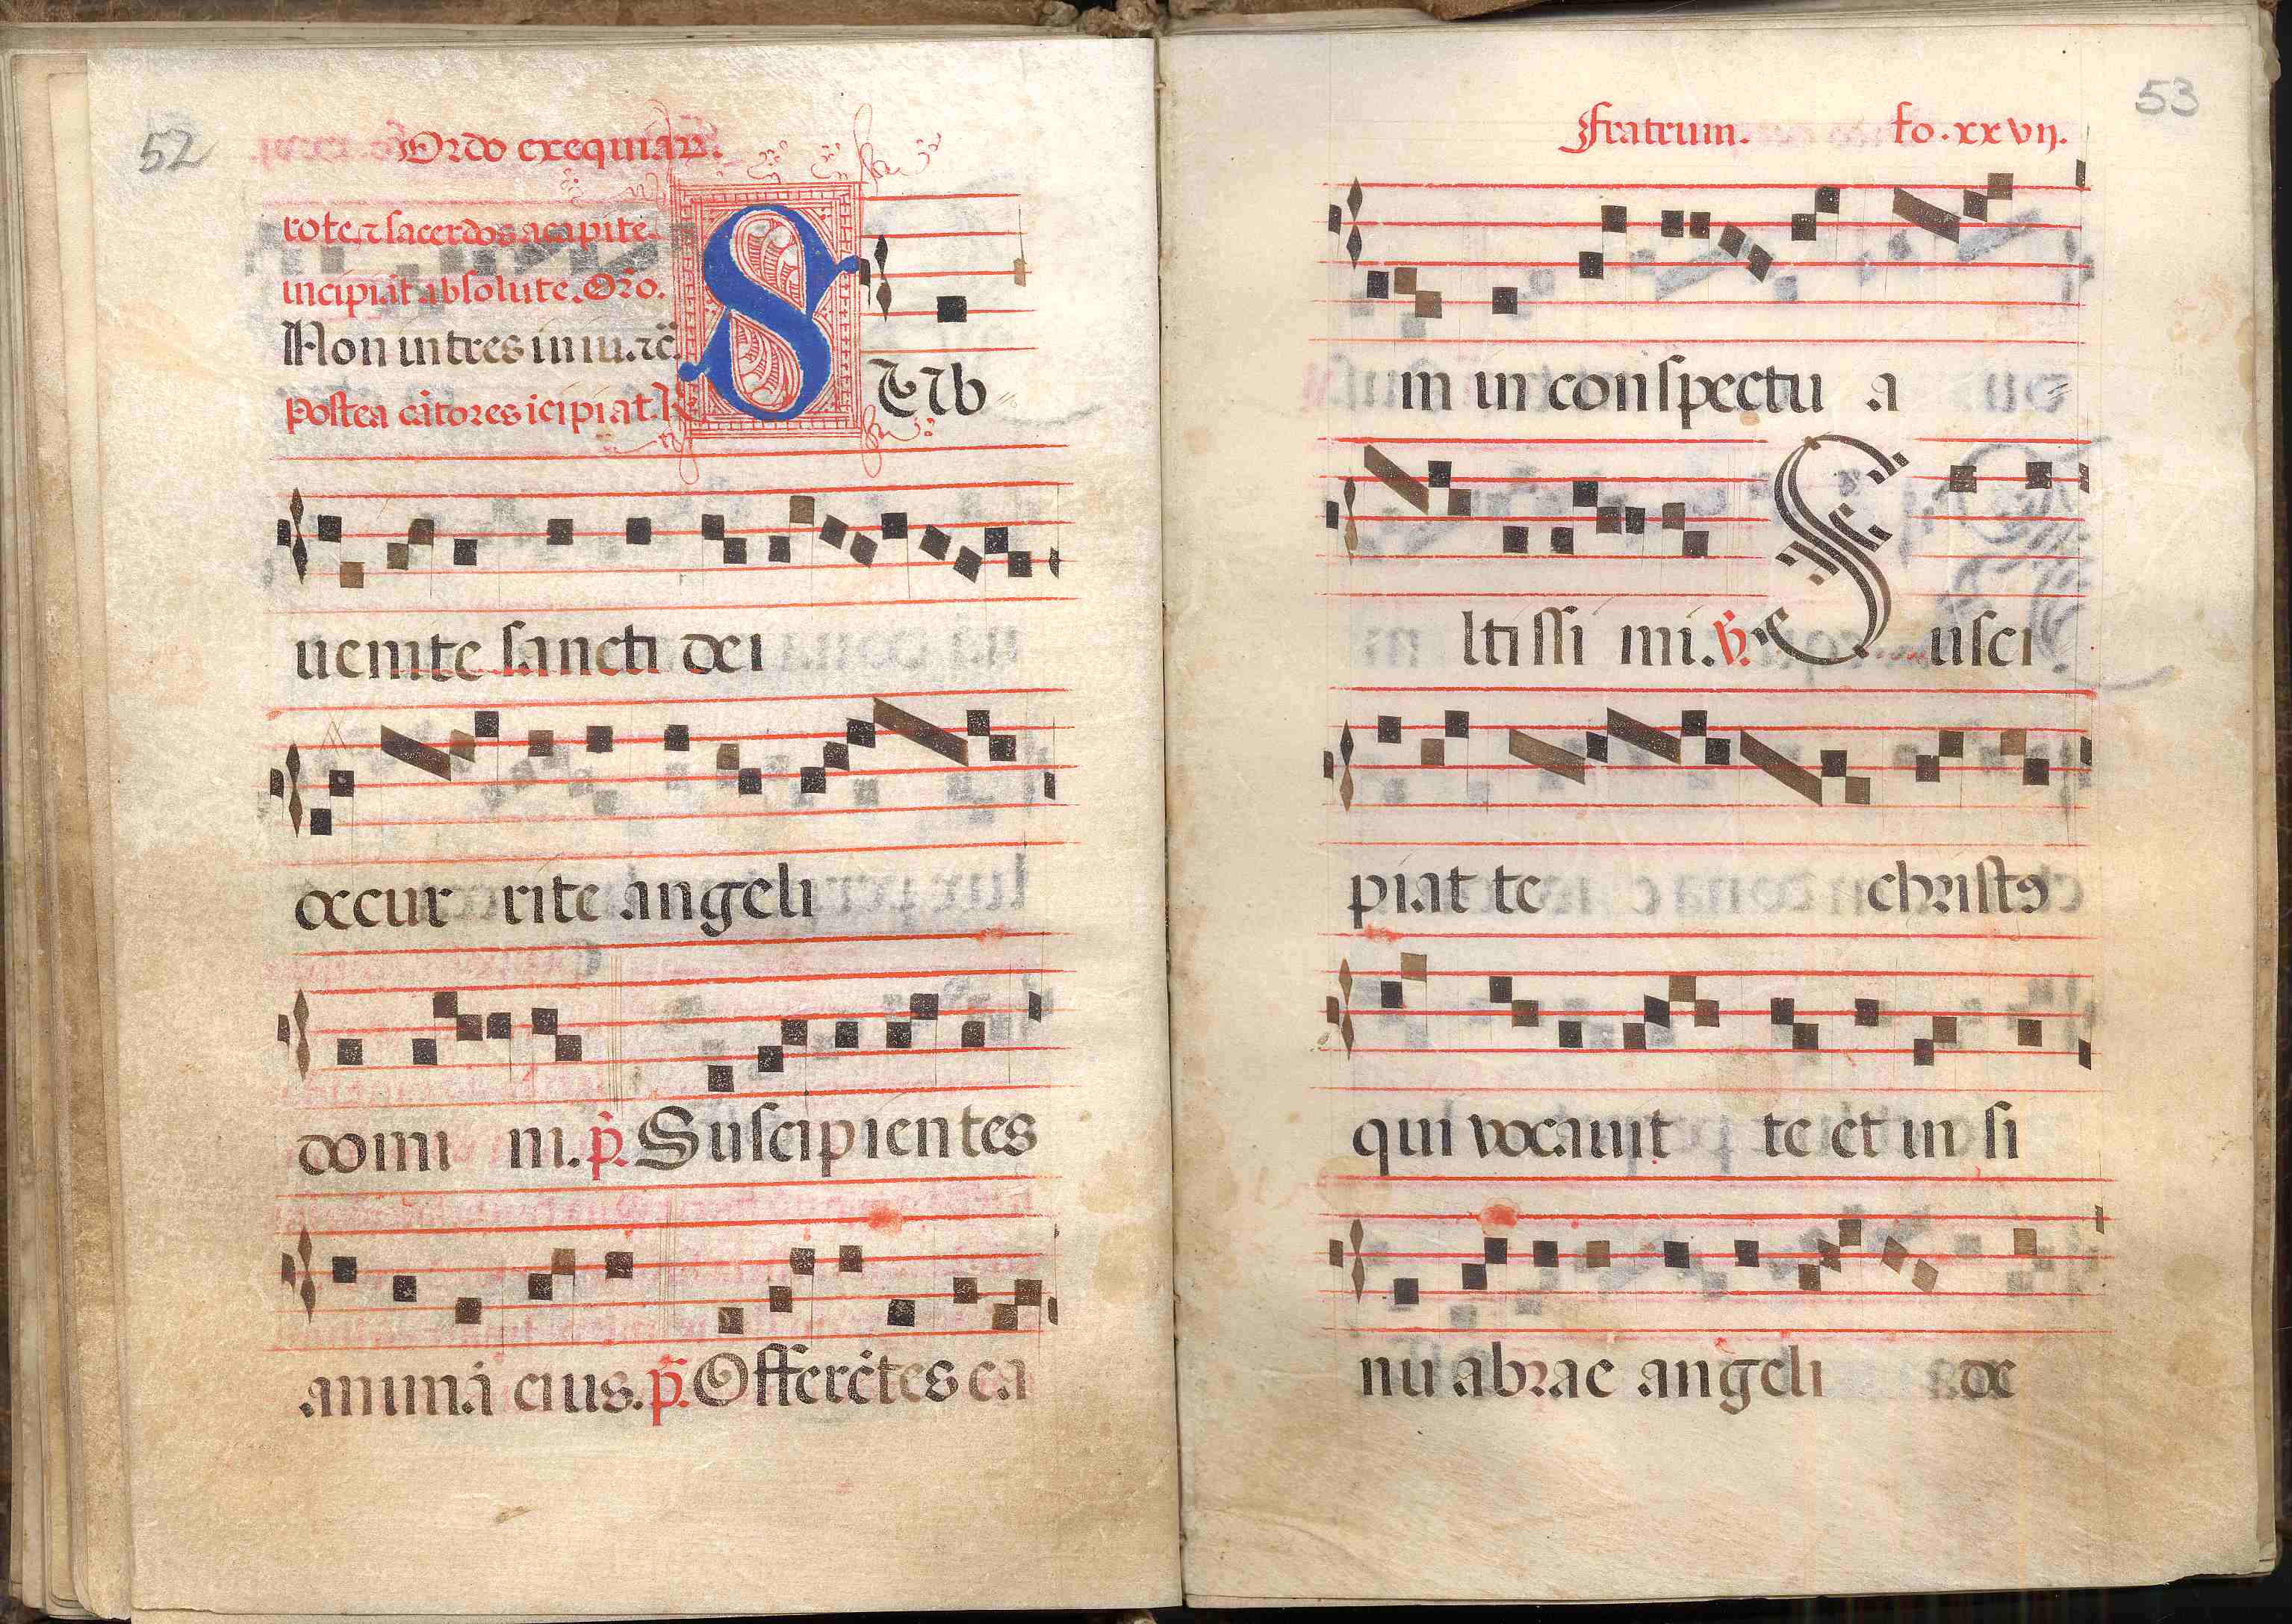 52
Ordo exequiaꝝ.
rote ⁊ sacerdos a capite
incipiat absolute. Oro.
Non intres in iu. ⁊c̄.
Postea cātores īcipiat. ℟
SUb
uenite sancti dei
occur rite angeli
domi ni. p̄. Suscipientes
animā eius. p̄. Offerētes ea
53
Fratrum. fo. xxvij.
m in conspectu a
ltissi mi. ℣. Susci
piat te christꝰ
qui vocauit te et in si
nu abrae angeli de